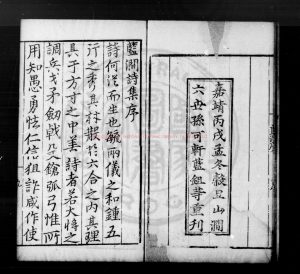 嘉靖丙戌孟冬穀旦山澗
六世孫可軒藍鈕等重刊
藍澗詩集序
詩何從而生也毓兩儀之和鍾五
行之秀其材散於六合之内其理
具于方寸之中善詩者若大將之
調兵戈矛劔戟殳鎗弧弓惟所
用知愚勇怯仁信狙詐咸作使